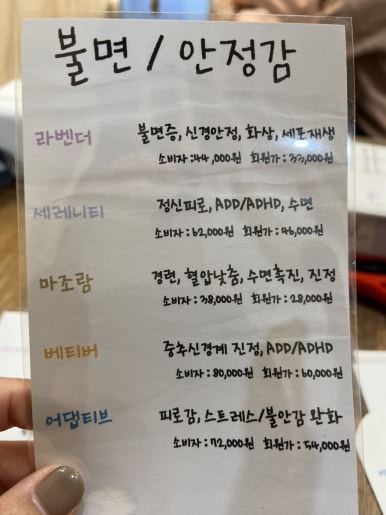 불면 / 안정감
라벤더 불면증, 신경안정, 화상, 세포재생
소비자 : 44,000원 회원가 : 33,000원
세레니티 정신피로, ADD/ADHD, 수면
소비자 : 62,000원 회원가 : 46,000원
마조람 경련, 혈압낮춤, 수면촉진, 진정
소비자 : 38,000원 회원가 : 28,000원
베티버 중추신경계 진정, ADD/ADHD
소비자 : 80,000원 회원가 : 60,000원
어댑티브 피로감, 스트레스/불안감 완화
소비자 : 72,000원 회원가 : 54,000원